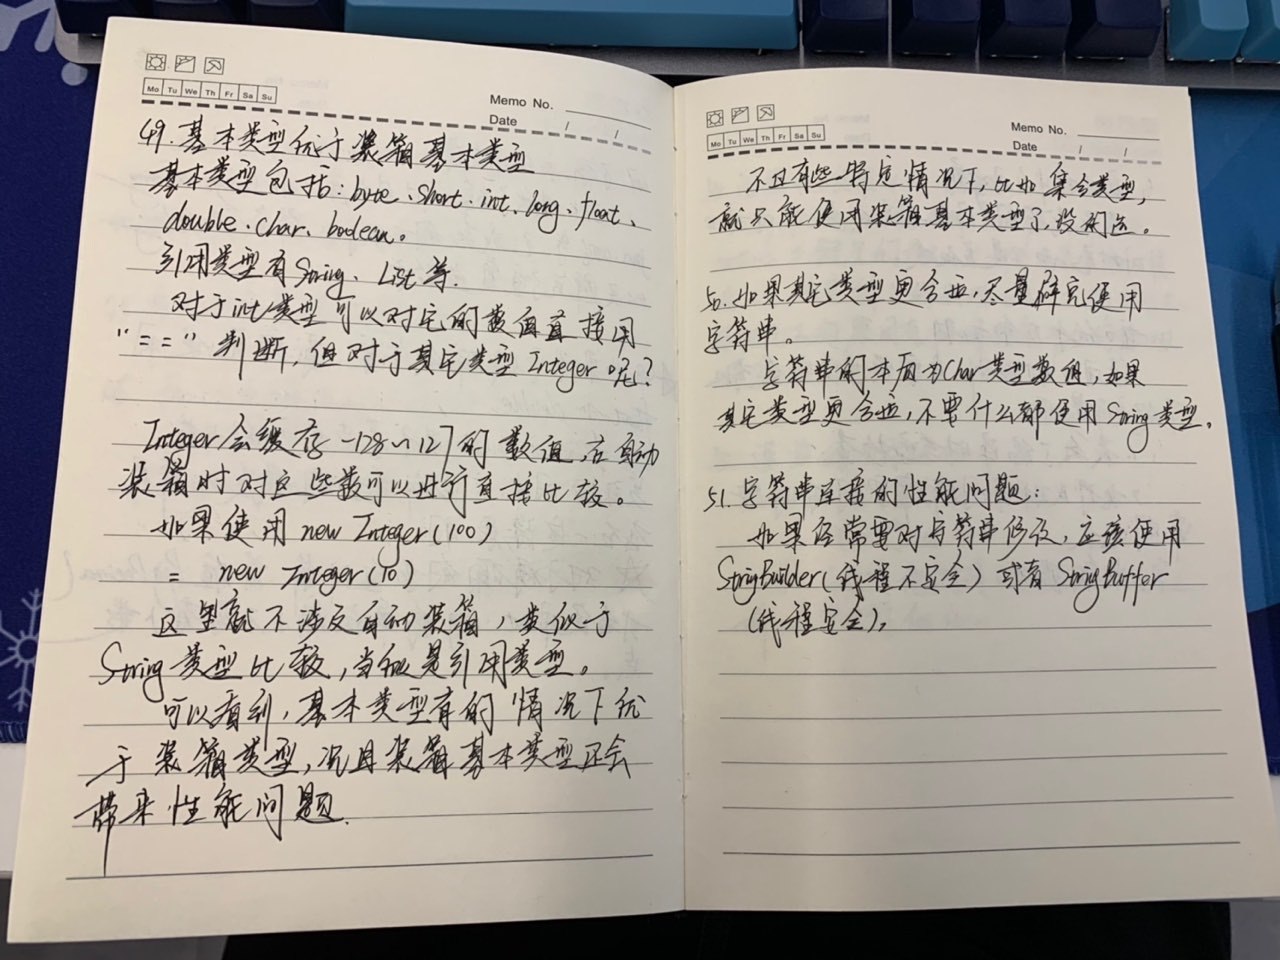 Mo Tu We Th Fr Sa Su
Memo No.
Date / /
49.基本类型优于装箱基本类型
基本类型包括:byte、short、int、long、float、
double、char、boolean。
引用类型有String、List等.
对于int类型可以对它的数值直接用
"==" 判断,但对于其它类型Integer呢?
Integer会缓存-128~127的数值,在自动
装箱时对应这些数可以进行直接比较。
如果使用 new Integer(100)
= new Integer(10)
这里就不涉及自动装箱,类似于
String类型比较,当做是引用类型。
可以看到,基本类型有的情况下优
于装箱类型,况且装箱基本类型还会
带来性能问题.
Mo Tu We Th Fr Sa Su
Memo No.
Date / /
不过有些特定情况下,比如集合类型,
就只能使用装箱基本类型了,没的选。
50.如果其它类型更合适,尽量避免使用
字符串。
字符串的本质为char类型数值,如果
其它类型更合适,不要什么都使用String类型。
51.字符串连接的性能问题:
如果经常要对字符串修改,应该使用
StringBuilder(线程不安全)或者StringBuffer
(线程安全)。